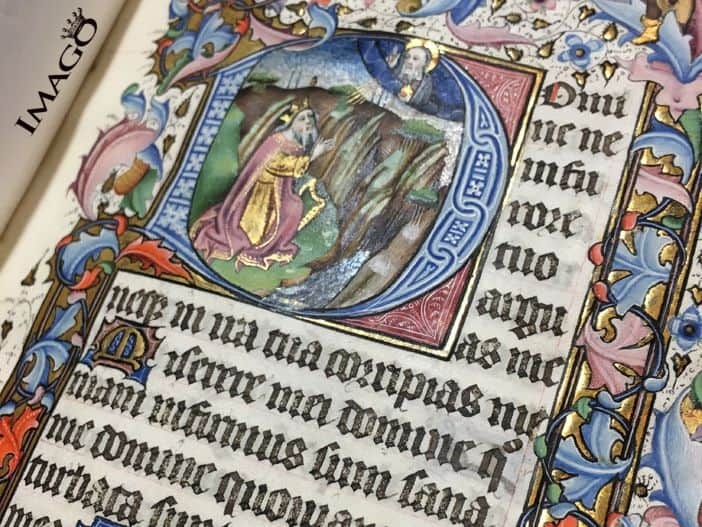 IMAGO
Omi
ne ne
in fu
rore
tuo
argu
as me
neqꝫ in ira tua corripias me
Miserere mei domine q̄
niam infirmus sum sana
me domine quonia
turbata